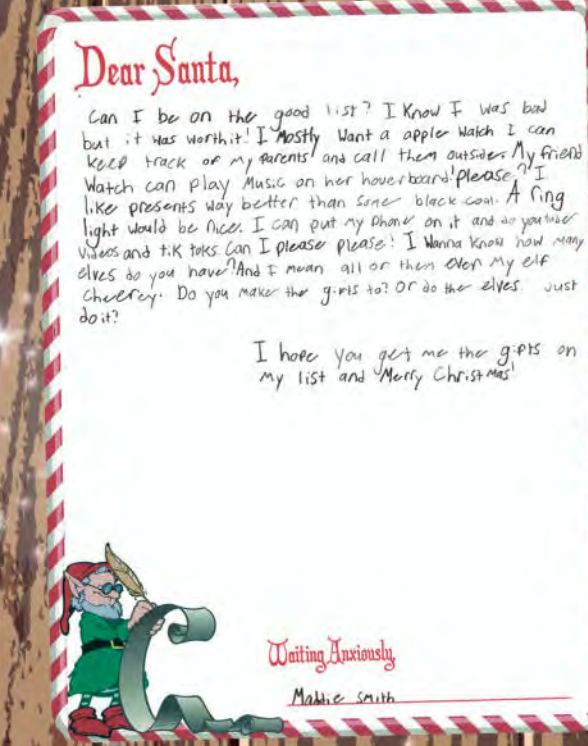 Dear Santa,
Can I be on the good list? I Know I was bad
but it was worth it! I Mostly Want a apple Watch I can
keep track of my parents and call them outside. My friend
Watch can play Music on her hoverboard! Please? I
like presents way better than some black coal. A ring
light would be nice. I can put my phone on it and do youtube
videos and tik toks. Can I please please! I Wanna know how many
elves do you have? And I mean all of them even My elf
Do you make the gifts to? Or do the elves Just
do it?
I hope you get me the gifts on
My list and Merry Christmas!
Waiting Anxiously,
Maddie Smith